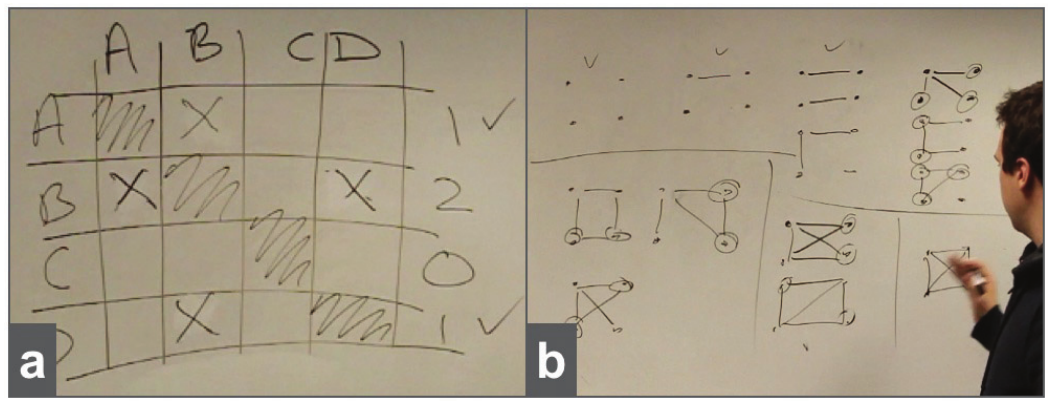 A B C D
A X 1 ✓
B X X 2
C 0
X 1 ✓
a
b